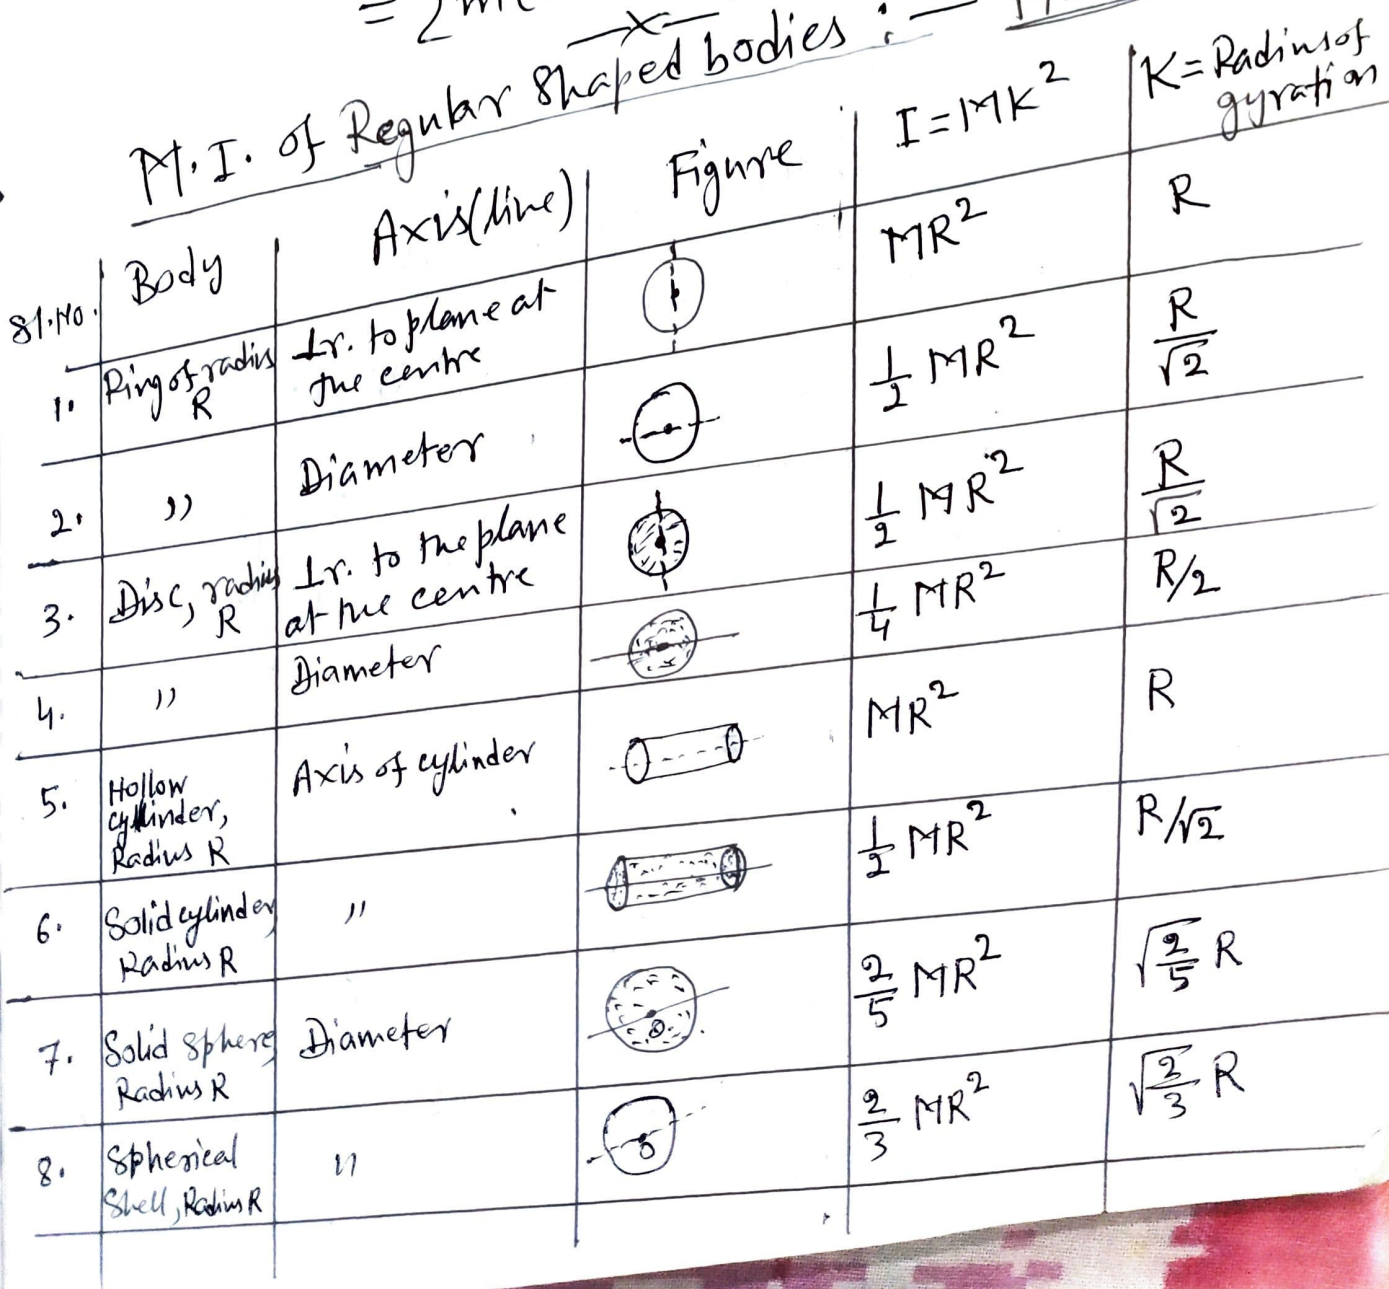 = 2m
M.I. of Regular Shaped bodies :-
Sl.No. Body Axis(line) Figure I=MK² K= Radius of gyration
1. Ring of radius R Ir. to plane at the centre MR² R
2. " Diameter 1/2 MR² R/√2
3. Disc, radius R Ir. to the plane at the centre 1/2 MR² R/√2
4. " Diameter 1/4 MR² R/2
5. Hollow cylinder, Radius R Axis of cylinder MR² R
6. Solid cylinder Radius R " 1/2 MR² R/√2
7. Solid Sphere Radius R Diameter 2/5 MR² √2/5 R
8. Spherical Shell, Radius R " 2/3 MR² √2/3 R